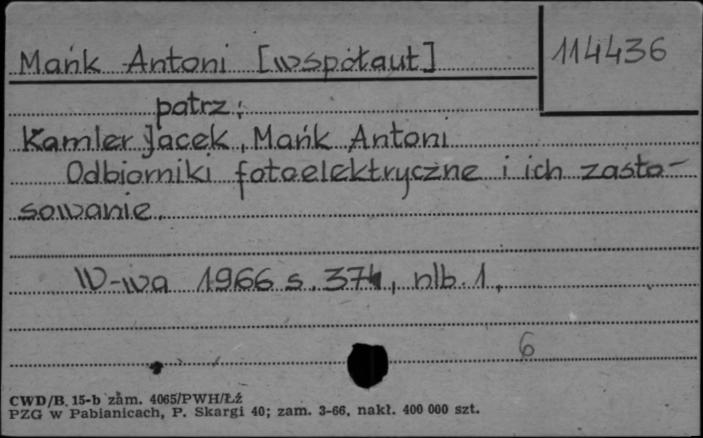 Mańk Antoni [współaut]
114436
patrz:
Kamler Jacek, Mańk Antoni
Odbiorniki fotoelektryczne i ich zasto-
sowanie.
W-wa 1966 s. 374, nlb. 1,
6
CWD/B. 15-b zam. 4065/PWH/Łź
PZG w Pabianicach, P. Skargi 40; zam. 3-66. nakł. 400 000 szt.